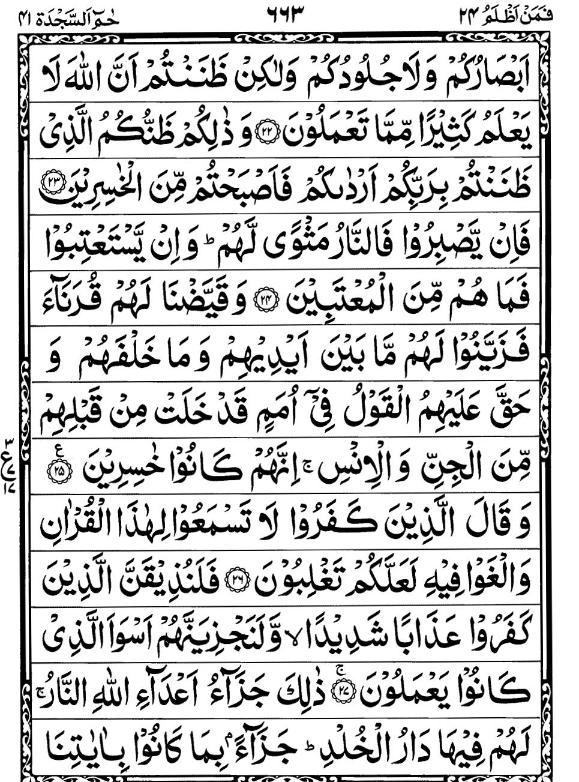 فَمَنْ اَظْلَمُ ٢٤ ٦٦٣ حٰمٓ اَلسَّجْدَة ٤١
اَبْصَارُكُمْ وَلَا جُلُوْدُكُمْ وَلٰكِنْ ظَنَنْتُمْ اَنَّ اللّٰهَ لَا
يَعْلَمُ كَثِيْرًا مِّمَّا تَعْمَلُوْنَ ﴿٢٢﴾ وَ ذٰلِكُمْ ظَنُّكُمُ الَّذِيْ
ظَنَنْتُمْ بِرَبِّكُمْ اَرْدٰىكُمْ فَاَصْبَحْتُمْ مِّنَ الْخٰسِرِيْنَ ﴿٢٣﴾
فَاِنْ يَّصْبِرُوْا فَالنَّارُ مَثْوًى لَّهُمْ ؕ وَ اِنْ يَّسْتَعْتِبُوْا
فَمَا هُمْ مِّنَ الْمُعْتَبِيْنَ ﴿٢٤﴾ وَ قَيَّضْنَا لَهُمْ قُرَنَآءَ
فَزَيَّنُوْا لَهُمْ مَّا بَيْنَ اَيْدِيْهِمْ وَ مَا خَلْفَهُمْ وَ
حَقَّ عَلَيْهِمُ الْقَوْلُ فِيْٓ اُمَمٍ قَدْ خَلَتْ مِنْ قَبْلِهِمْ
مِّنَ الْجِنِّ وَ الْاِنْسِ ۚ اِنَّهُمْ كَانُوْا خٰسِرِيْنَ ﴿٢٥﴾ ع
وَ قَالَ الَّذِيْنَ كَفَرُوْا لَا تَسْمَعُوْا لِهٰذَا الْقُرْاٰنِ
وَالْغَوْا فِيْهِ لَعَلَّكُمْ تَغْلِبُوْنَ ﴿٢٦﴾ فَلَنُذِيْقَنَّ الَّذِيْنَ
كَفَرُوْا عَذَابًا شَدِيْدًا ۙ وَّ لَنَجْزِيَنَّهُمْ اَسْوَاَ الَّذِيْ
كَانُوْا يَعْمَلُوْنَ ﴿٢٧﴾ ۚ ذٰلِكَ جَزَآءُ اَعْدَآءِ اللّٰهِ النَّارُ ۚ
لَهُمْ فِيْهَا دَارُ الْخُلْدِ ؕ جَزَآءًۢ بِمَا كَانُوْا بِاٰيٰتِنَا